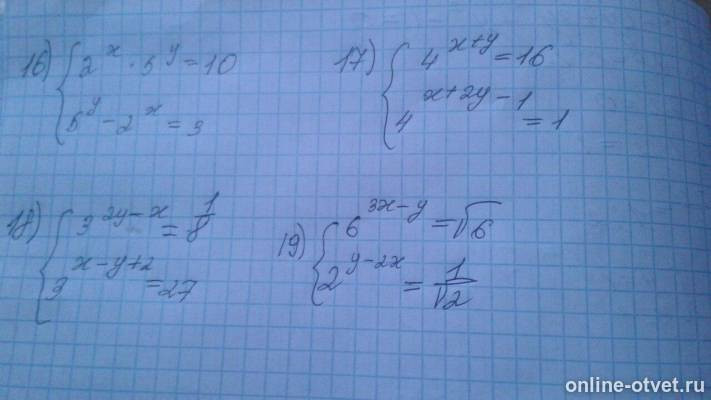 16) { 2^x · 5^y = 10
5^y - 2^x = 3
17) { 4^{x+y} = 16
4^{x+2y-1} = 1
18) { 3^{2y-x} = 1/8
3^{x-y+2} = 27
19) { 6^{3x-y} = √6
2^{y-2x} = 1/√2
online-otvet.ru